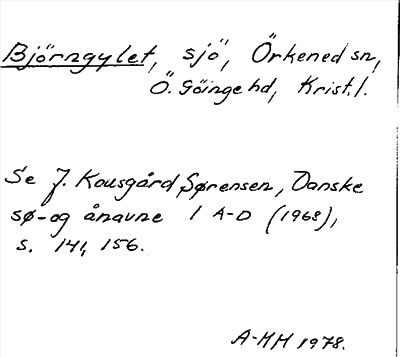 Björngylet, sjö, Örkened sn,
Ö. Göinge hd, Krist. l.
Se J. Kousgård Sørensen, Danske
sø- og ånavne 1 A-D (1968),
s. 141, 156.
A-MH 1978.